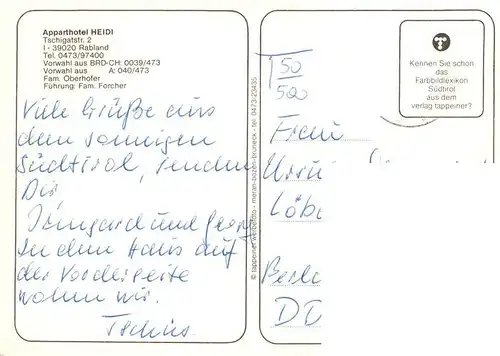 Apparthotel HEIDI
Tschigatstr. 2
I - 39020 Rabland
Tel. 0473/97400
Vorwahl aus BRD-CH: 0039/473
Vorwahl aus A: 040/473
Fam. Oberhofer
Führung: Fam. Forcher
Viele Grüße aus
dem sonnigen
Südtirol, senden
Dir,
Irmgard und Georg
In dem Haus auf
der Vorderseite
wohnen wir.
Tschüs.
© tappeiner werbefoto - meran-bozen-bruneck - tel. 0473-23435
50
500
Kennen Sie schon
das
Farbbildlexikon
Südtirol
aus dem
verlag tappeiner?
Frau
Berl